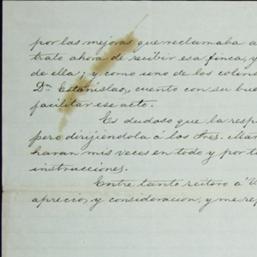 por las mejoras que reclamaba a
trato ahora de recibir esa finca, y
de ella; y como uno de los colind
Dn. Estanislao, cuento con su bue
facilitar ese acto.
Es dudoso que la resp
pero dirijiéndola á los Sres. Man
haran mis veces en todo y por to
instrucciones.
Entre tanto reitero á U
aprecio, y consideracion, y me rep